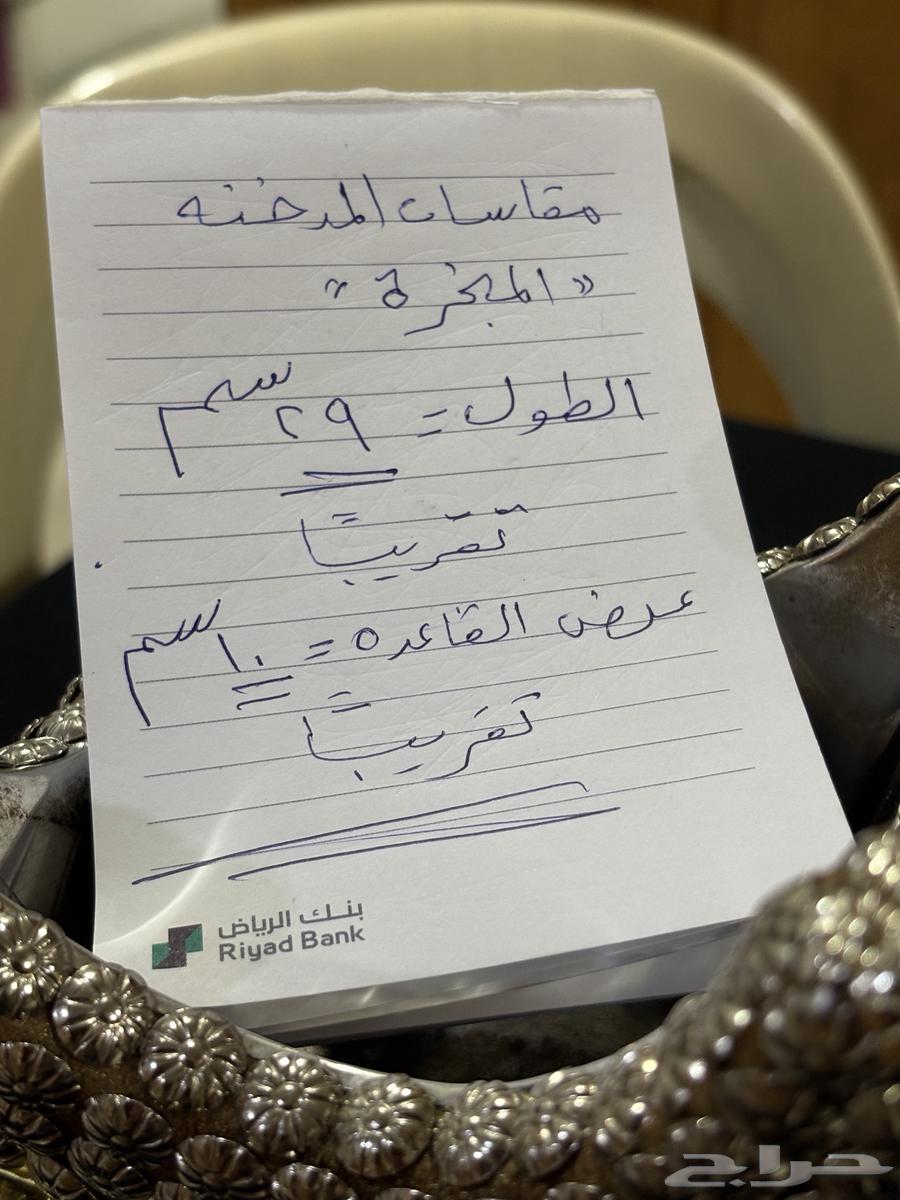 مقاسات المدخنه
« المبخرة »
الطول = ٢٩ سم
تقريبًا
عرض القاعده = ١٠ سم
تقريبًا
بنك الرياض
Riyad Bank
حراج